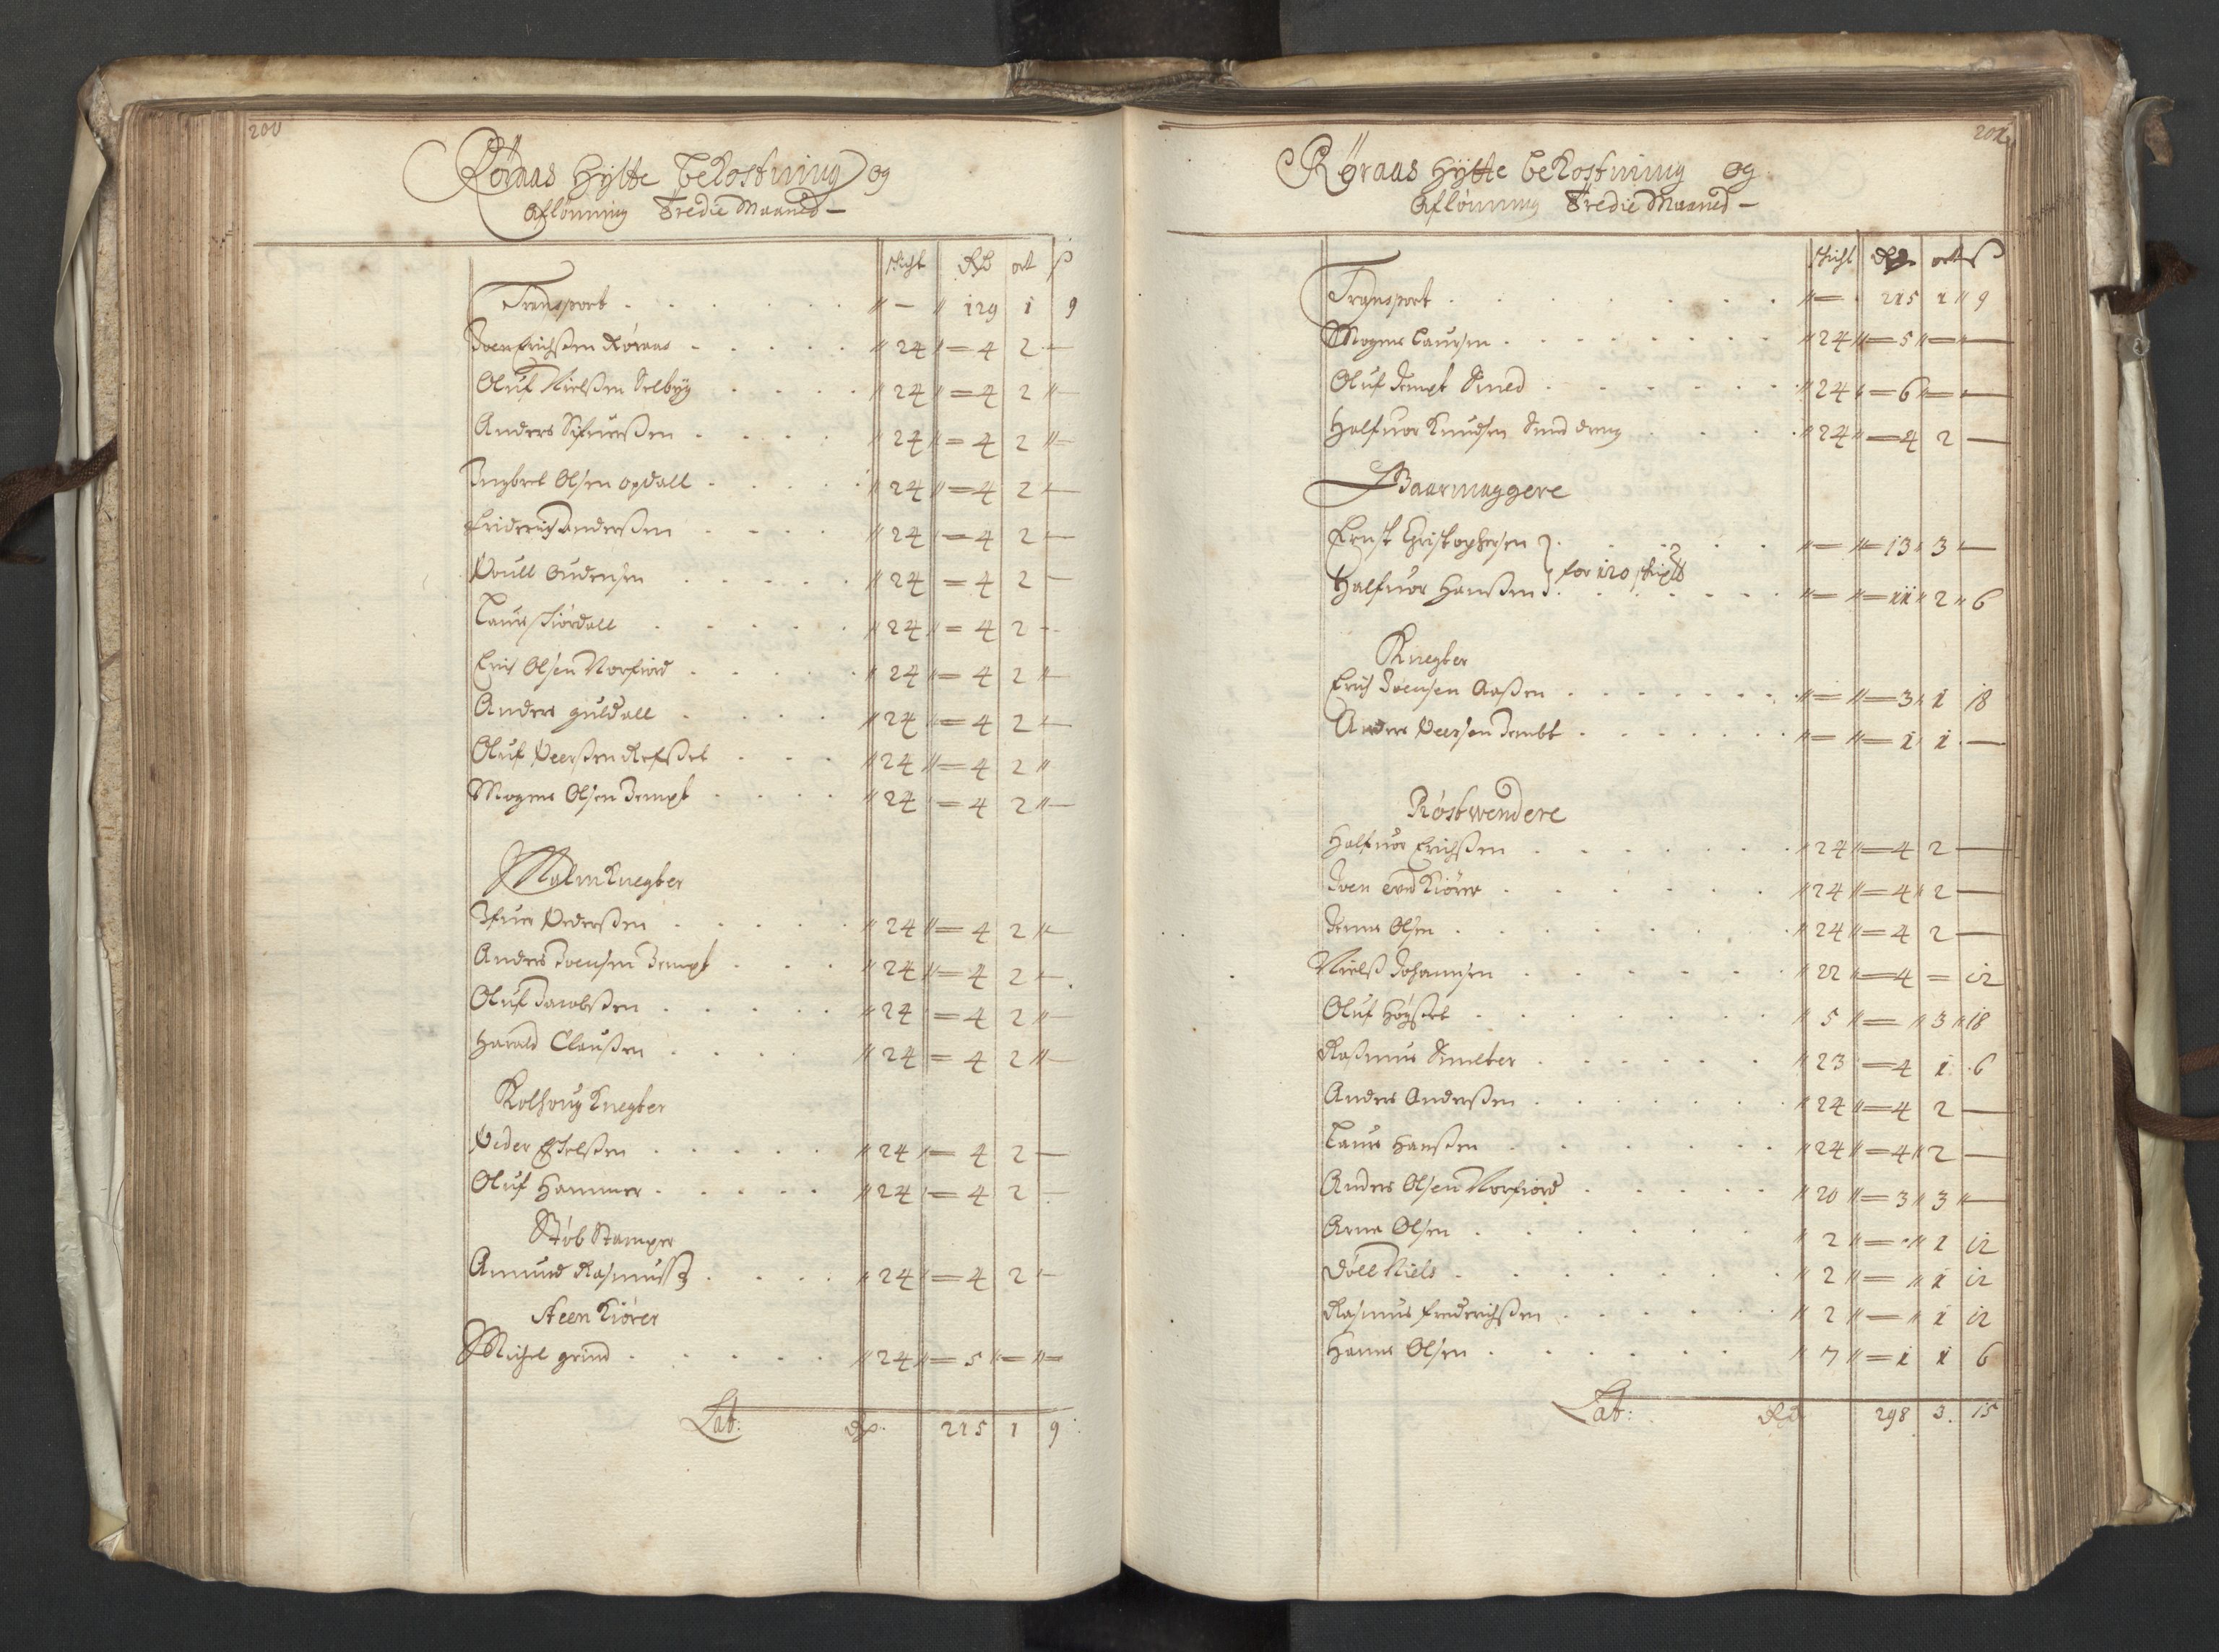 200
Røraas Hytte bekostning og
Aflønning Tredie Maaned —
schicht Rd ort ß
Transport . . . . . " — " 129 1 9
Joen Erichsßen Røraas . . . . " 24 " = 4 2 —
Oluf Nielßen Selbyg . . . " 24 " = 4 2 " —
Anders Sifuerßen . . . . " 24 " = 4 2 " —
Ingbret Olsen opdall . . . . " 24 " = 4 2 " —
Friderich Anderßen . . . . " 24 " = 4 2 —
Poull Audensen . . . . . " 24 = 4 2 —
Laurs Stiørdall . . . . . " 24 " = 4 2 —
Erich Olsen Norfiord . . . . " 24 " = 4 2 " —
Anders guldall . . . . " 24 " = 4 2 " —
Oluf Peerßen Refßet . . . " 24 " = 4 2 "
Mogens Olsen Jempt . . . . " 24 = 4 2 " —
Malm Knegter
Ifuer Pederßen . . . . . " 24 " = 4 2 " —
Anders Joensen Jempt . . . " 24 " = 4 2 " —
Oluf Jacobßen . . . . . " 24 = 4 2 " —
Harald Claußen . . . . " 24 = 4 2 " —
Kolhoug Knegter
Peder Eskelßen . . . . . " 24 " = 4 2 —
Oluf Hammer . . . . . " 24 = 4 2 —
Støb Stamper
Amund Rasmußß . . . . " 24 " = 4 2 " —
Steen Kiører
Michel grind . . . . . " 24 " = 5 " = " =
Lat: Rd 215 1 9
201
Røraas Hytte bekostning og
Aflønning Tredie Maaned —
schicht Rd ort ß
Transport . . . . . . . " = . 215 1 " 9
Mogens Laursen . . . . . . . . " 24 " = 5 " = " —
Oluf Jempt Smed . . . . . . " 24 " = 6 " = " —
Halfuor Knudsen Smed dreng . . . . " 24 " = 4 2 —
Gaarmaggere
Ernst Christophersen . . . . " = " = 13 " 3 " —
for 120 schicht
Halfuor Hanßen . . . . . . " = " = 11 " 2 " 6
Knegter
Erich Joensen Aaßen . . . . . . . " = " = 3 " 1 18
Anders Peersen Jembt . . . . . . . " = " = 1 " 1 . —
Røstwendere
Halfuor Erichßen . . . . . . . " 24 " = 4 2 —
Joen wed Kiører . . . . . . " 24 " = 4 " 2 —
Jenns Olsen . . . . . . . . " 24 " = 4 2 —
Nielß Johannsen . . . . . . " 22 " = 4 = 12
Oluf Høyßet . . . . . . . " 5 " = " 3 " 18
Raßmus Smelter . . . . . . " 23 = 4 1 . 6
Anders Anderßen . . . . . . . " 24 " = 4 2 —
Laurs Hanßen . . . . . . " 24 " = 4 " 2 —
Anders Olsen Norfiord . . . . . " 20 " = 3 " 3 " —
Arne Olsen . . . . . . " 2 " = " 1 12
Døll Niels . . . . . . . " 2 " = " 1 12
Rasmus Frederichßen . . . . . . " 2 " = " 1 12
Hanns Olsen . . . . . . " 7 " = 1 1 6
Lat: Rd 298 3. 15